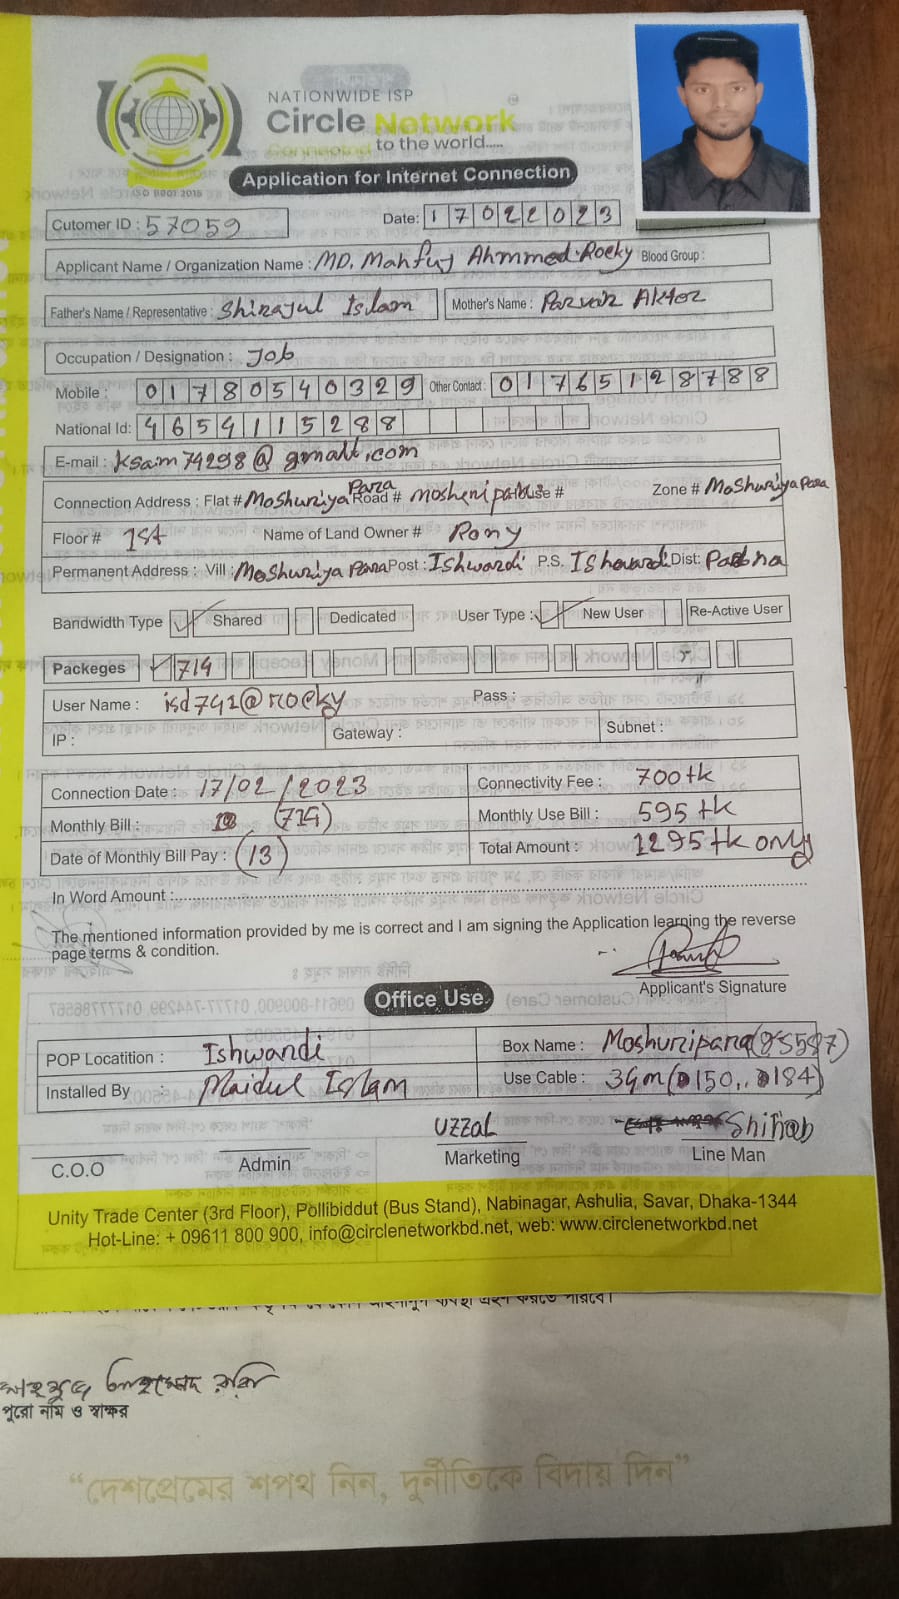 NATIONWIDE ISP
Circle Network
Connected to the world.....
ISO 9001:2015
Application for Internet Connection
Cutomer ID : 57059 Date: 17022023
Applicant Name / Organization Name : MD. Mahfuj Ahmmed Rocky Blood Group :
Father's Name / Representative : Shirajul Islam Mother's Name : Parvin Aktor
Occupation / Designation : Job
Mobile : 01780540329 Other Contact : 01765128788
National Id: 4654115288
E-mail : ksaim74298@gmail.com
Connection Address : Flat # Moshuriya Para Road # House # Zone # Moshuriya Para
Floor # 1st Name of Land Owner # Rony
Permanent Address : Vill : Moshuriya Para Post : Ishwardi P.S. Ishwardi Dist: Pabna
Bandwidth Type Shared Dedicated User Type : New User Re-Active User
Packeges 714
User Name : isd742@rocky Pass :
IP : Gateway : Subnet :
Connection Date : 17/02/2023 Connectivity Fee : 700tk
Monthly Bill : (714) Monthly Use Bill : 595tk
Date of Monthly Bill Pay : (13) Total Amount : 1295tk only
In Word Amount :
The mentioned information provided by me is correct and I am signing the Application learning the reverse
page terms & condition.
Applicant's Signature
Office Use
POP Locatition : Ishwardi Box Name : Moshuripara
Installed By : Maidul Islam Use Cable : 34m
UZZAL Shihab
C.O.O Admin Marketing Line Man
Unity Trade Center (3rd Floor), Pollibiddut (Bus Stand), Nabinagar, Ashulia, Savar, Dhaka-1344
Hot-Line: + 09611 800 900, info@circlenetworkbd.net, web: www.circlenetworkbd.net
মাহফুজ আহম্মেদ রকি
পুরো নাম ও স্বাক্ষর
“দেশপ্রেমের শপথ নিন, দুর্নীতিকে বিদায় দিন”